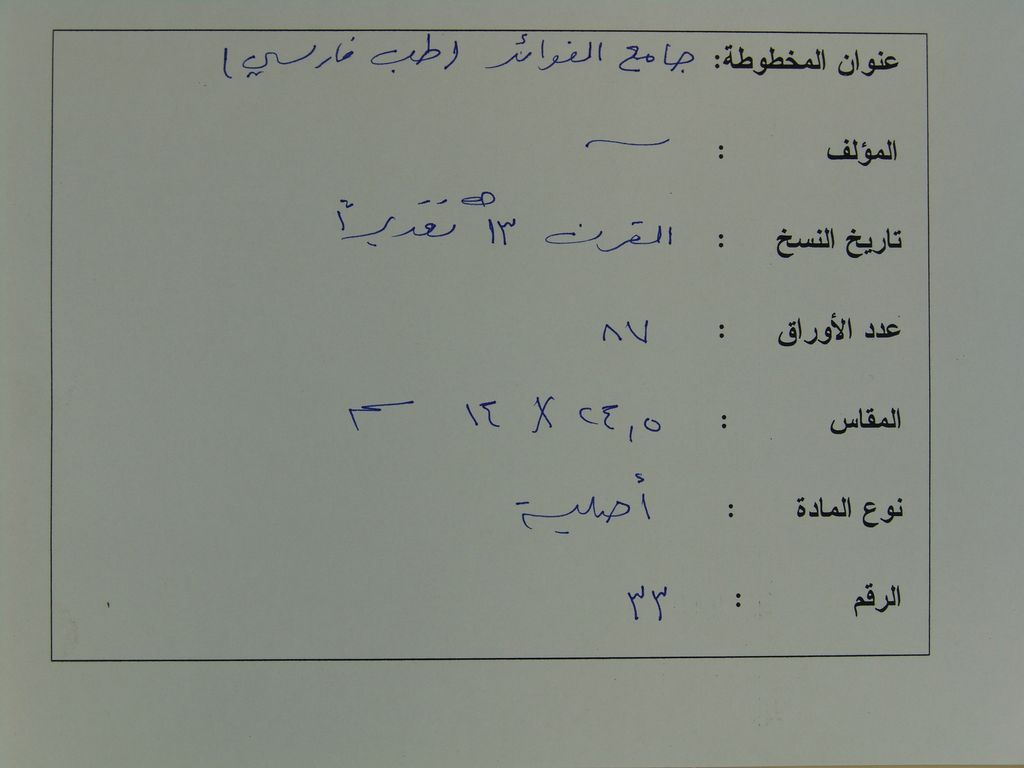 عنوان المخطوطة: جامع الفوائد (طب فارسي)
المؤلف : ـــ
تاريخ النسخ : القرن ١٣ هـ تقديراً
عدد الأوراق : ٨٧
المقاس : ٢٤,٥ X ١٤ سم
نوع المادة : أصلية
الرقم : ٣٣